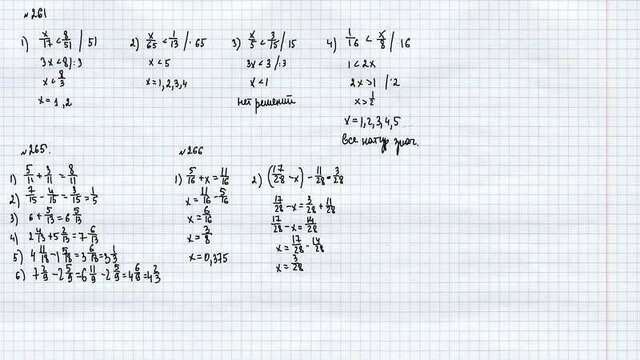 №261
1) x/17 < 8/51 / 51
3x < 8 /:3
x < 8/3
x = 1, 2
2) x/65 < 1/13 / · 65
x < 5
x = 1, 2, 3, 4
3) x/5 < 3/15 / 15
3x < 3 /:3
x < 1
нет решений
4) 1/16 < x/8 / 16
1 < 2x
2x > 1 / :2
x > 1/2
x = 1, 2, 3, 4, 5
все натур знач.
№265.
1) 5/11 + 3/11 = 8/11
2) 7/15 - 4/15 = 3/15 = 1/5
3) 6 + 5/13 = 6 5/13
4) 2 4/13 + 5 2/13 = 7 6/13
5) 4 11/18 - 1 5/18 = 3 6/18 = 3 1/3
6) 7 2/9 - 2 5/9 = 6 11/9 - 2 5/9 = 4 6/9 = 4 2/3
№266
1) 5/16 + x = 11/16
x = 11/16 - 5/16
x = 6/16
x = 3/8
x = 0,375
2) (17/28 - x) - 11/28 = 3/28
17/28 - x = 3/28 + 11/28
17/28 - x = 14/28
x = 17/28 - 14/28
x = 3/28